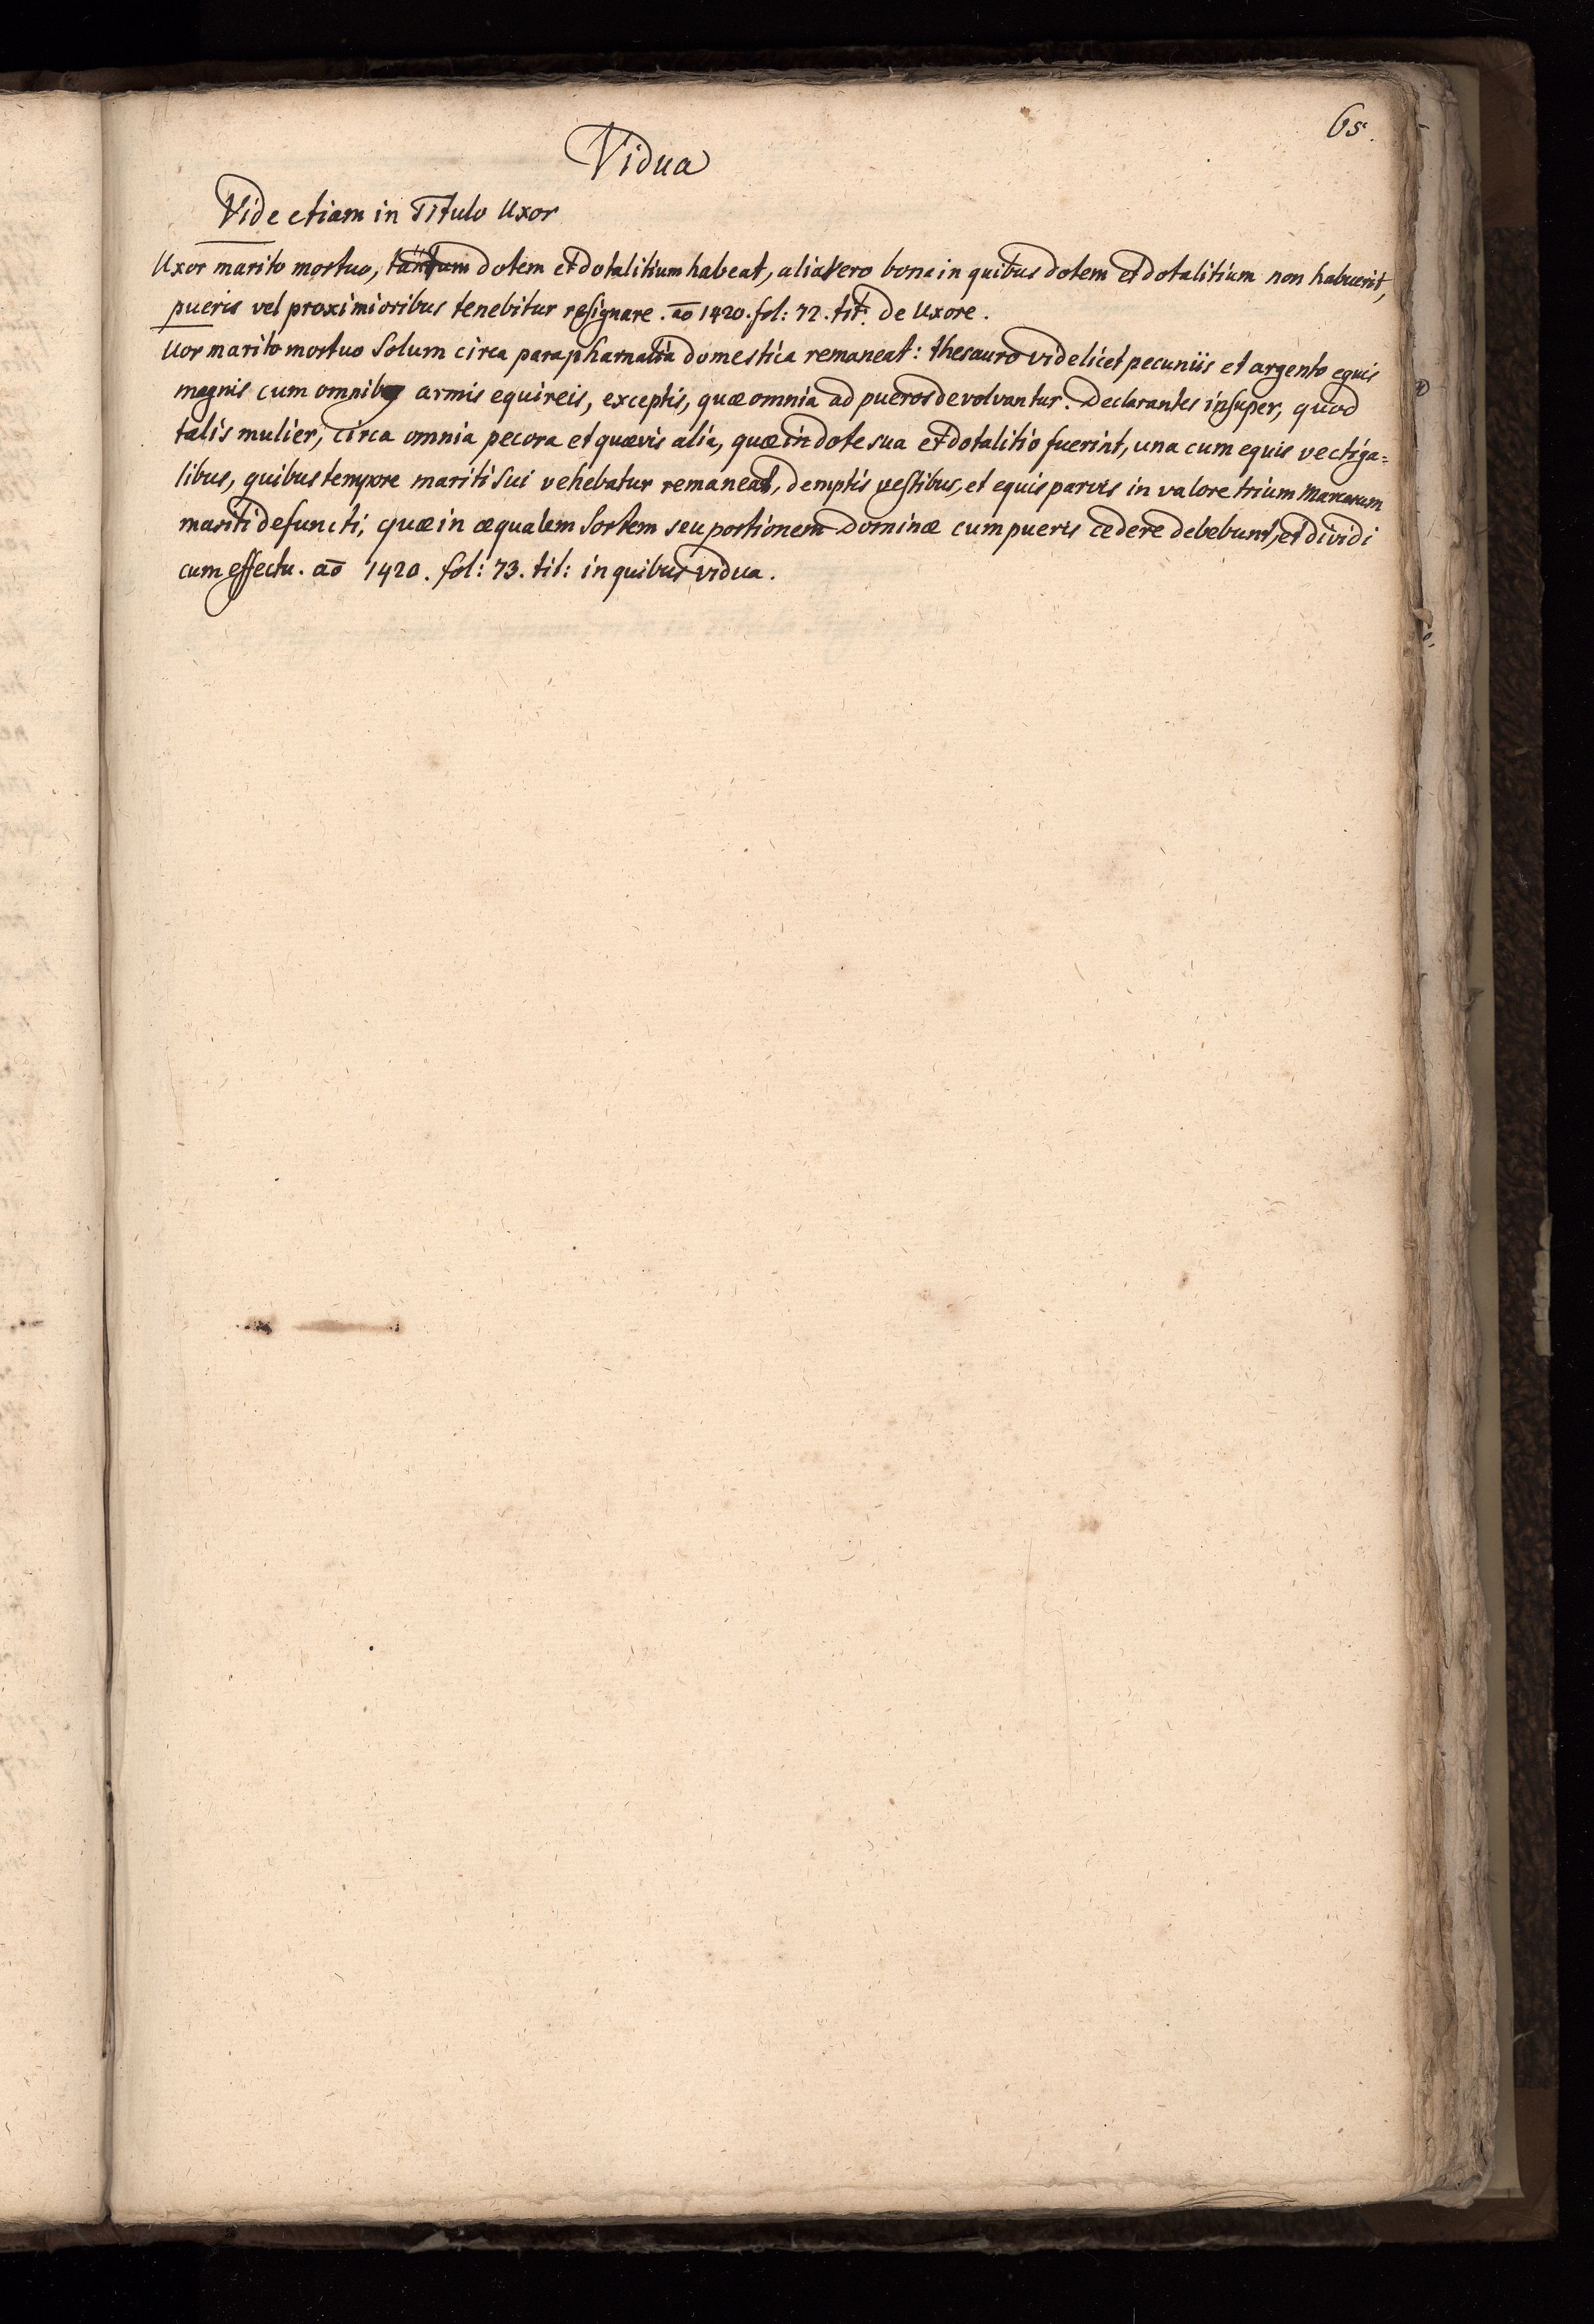 65.
Vidua
Vide etiam in Titulo Uxor
Uxor marito mortuo, tantum dotem et dotalitium habeat, alia vero bona in quibus dotem et dotalitium non habuerit,
pueris vel proximioribus tenebitur resignare. ao 1420. fol: 72. tit: De Uxore.
Uor marito mortuo Solum circa parapharnalia domestica remaneat: thesauro videlicet pecuniis et argento equis
magnis cum omnibus armis equireis, exceptis, quæ omnia ad pueros devolvantur. Declarantes insuper, quod
talis mulier, circa omnia pecora et quævis alia, quæ in dote sua et dotalitio fuerint, una cum equis vectiga=
libus, quibus tempore mariti sui vehebatur remaneat, demptis vestibus, et equis parvis in valore trium Marcarum
mariti defuncti, quæ in æqualem Sortem seu portionem Dominæ cum pueris cedere debebunt, et dividi
cum effectu. ao 1420. fol: 73. tit: in quibus vidua.